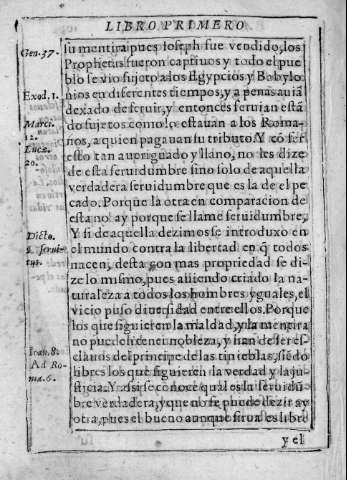 LIBRO PRIMERO
Gen. 37.
su mentira pues Ioseph fue vendido, los
Prophetas fueron captiuos y todo el pue
blo se vio sujeto a los Egypcios y Babylo
Exod. 1.
nios en diferentes tiempos, y a penas auiã
dexado de seruir, y entonces seruian estã
Marci.
12.
do sujetos como lo estauan a los Roma-
nos, a quien pagauan su tributo. Y cõ ser
Lucæ.
20.
esto tan aueriguado y llano, no les dize
de esta seruidumbre sino solo de aquella
verdadera seruidumbre que es la de el pe
cado. Porque la otra en comparacion de
esta no ay porque se llame seruidumbre,
Dicto.
Y si de aquella dezimos se introduxo en
el mundo contra la libertad en q̃ todos
nacen, desta con mas propriedad se di-
ze lo mismo, pues auiendo criado la na-
turaleza a todos los hombres yguales, el
vicio puso diuersidad entre ellos. Porque
los que siguieren la maldad, y la mentira
Ioan. 8.
no pueden tener nobleza, y han de ser es-
clauos del principe de las tinieblas, siẽdo
Ad Ro-
ma. 6.
libres los que siguieren la verdad y la ju-
sticia. Y assi se conoce qual es la seruidũ
bre verdadera, y que no se puede dezir ay
otra, pues el bueno aunque sirua es libre
y el